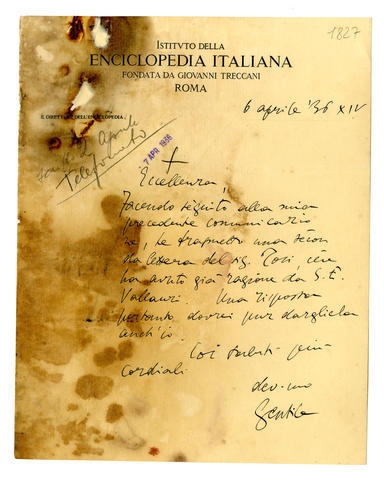 1827
ISTITVTO DELLA
ENCICLOPEDIA ITALIANA
FONDATA DA GIOVANNI TRECCANI
ROMA
6 aprile '36 XIV
IL DIRETTORE DELL'ENCICLOPEDIA
7 APR 1936
Telefonato
Eccellenza,
facendo seguito alla mia
precedente comunicazio
ne, Le trasmetto una secon
da lettera del sig. Tosi, cui
ha avuto già ragione da S. E.
Vallauri. Una risposta
pertanto dovrei pur dargliela
anch'io.
Coi saluti più
cordiali
dev.mo
Gentile